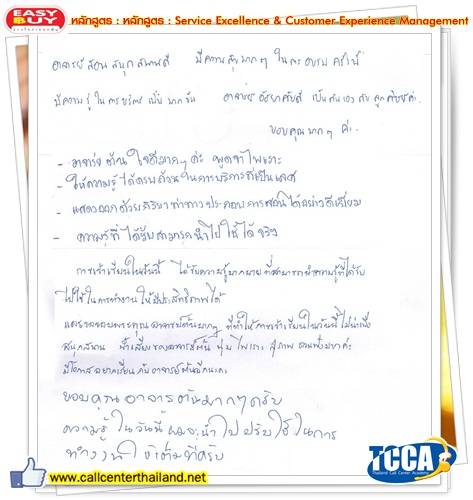 EASY BUY หลักสูตร : หลักสูตร : Service Excellence & Customer Experience Management
อาจารย์สอนสนุกสนานดี มีความสุขมากๆ ในการอบรมครั้งนี้
มีความรู้ในการบริการเพิ่มมากขึ้น อาจารย์อัธยาศัยดี เป็นกันเองกับลูกศิษย์ค่ะ
ขอบคุณมากๆ ค่ะ
- อาจารย์ต้นใจดีมากๆ ค่ะ พูดจาไพเราะ
- ให้ความรู้ได้ครบถ้วนในการบริการที่เป็นเลิศ
- แสดงออกด้วยกิริยาท่าทางประกอบการสอนได้อย่างดีเยี่ยม
- ความรู้ที่ได้รับสามารถนำไปใช้ได้จริง
การเข้าเรียนในวันนี้ ได้รับความรู้มากมายที่สามารถนำความรู้ที่ได้รับ
ไปใช้ในการทำงานให้มีประสิทธิภาพได้
และขอขอบพระคุณอาจารย์ต้นมากๆ ที่ทำให้การเข้าเรียนในวันนี้ไม่น่าเบื่อ
สนุกสนาน น้ำเสียงของอาจารย์ต้น นุ่ม ไพเราะ สุภาพ ชวนฟังมากค่ะ
มีโอกาสอยากเรียนกับอาจารย์ต้นอีกนะคะ
ขอบคุณอาจารย์ต้นมากๆครับ
ความรู้ในวันนี้ผมจะนำไปปรับใช้ในการ
ทำงานให้เต็มที่ครับ
www.callcenterthailand.net
TCCA
Thailand Call Center Academy